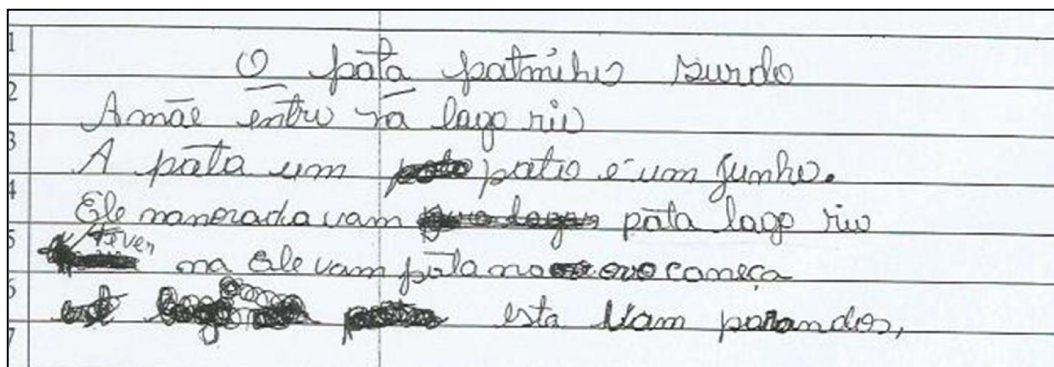 O pata patinho surdo
A mãe entro na lago rio
A pata um patio é um junho.
Ele namorada vam pata lago rio
Tiver na Ele vam pata no ovo começa
esta vam parandos,